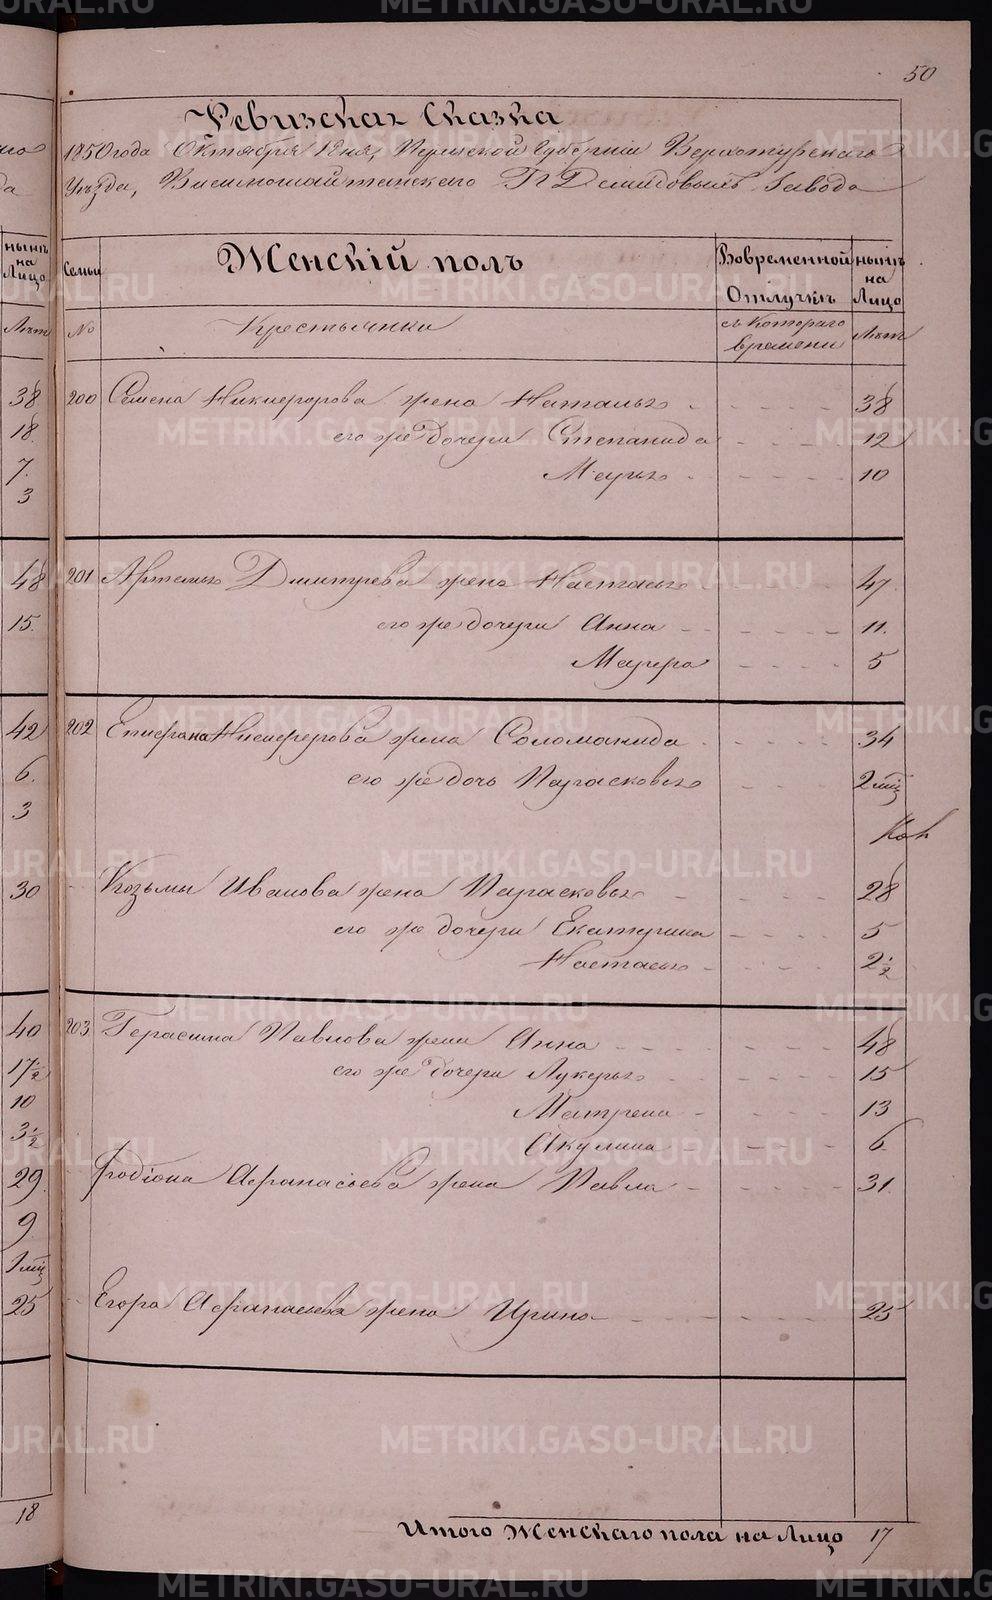 50
Ревизская Сказка
1850 года Октября 1 дня, Пермской Губернии Верхотурскаго
Уѣзда, Висимошайтанскаго ГГ Демидовыхъ Завода
нынѣ на Лицо
Семьи
Женскій полъ
Вовременной Отлучкѣ
нынѣ на Лицо
Лѣтъ
№
Крестьянки
съ Котораго времени
Лѣтъ
38 200 Семена Никифорова жена Наталья 38
18. его же дочери Степанида 12
7. Марья 10
3
48 201 Артемья Дмитрева жена Настасья 47
15. его же дочери Анна 11.
Мавра 5
42 202 Епифана Никифорова жена Соломанида 34
6. его же дочь Парасковья 2 мѣц
3
30 Козьмы Иванова жена Парасковья 28
его же дочери Екатерина 5
Настасья 2 1/2
40 203 Герасима Павлова жена Анна 48
17 1/2 его же дочери Лукерья 15
10 Матрена 13
3 1/2 Акулина 6
29. Родіона Афанасьева жена Павла 31.
9
1 мѣц
25 Егора Афанасьева жена Ирина 25
18
Итого Женскаго пола на Лицо 17
METRIKI.GASO-URAL.RU